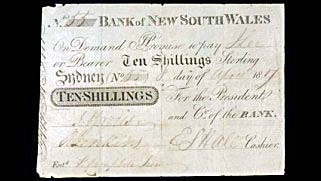 No. 55 BANK OF NEW SOUTH WALES
On Demand I Promise to pay
or Bearer Ten Shillings Sterling
Sydney No. 55 8 day of April 1817
TEN SHILLINGS For the President
and Co. of the Bank
E S Hall Cashier.
Entd.